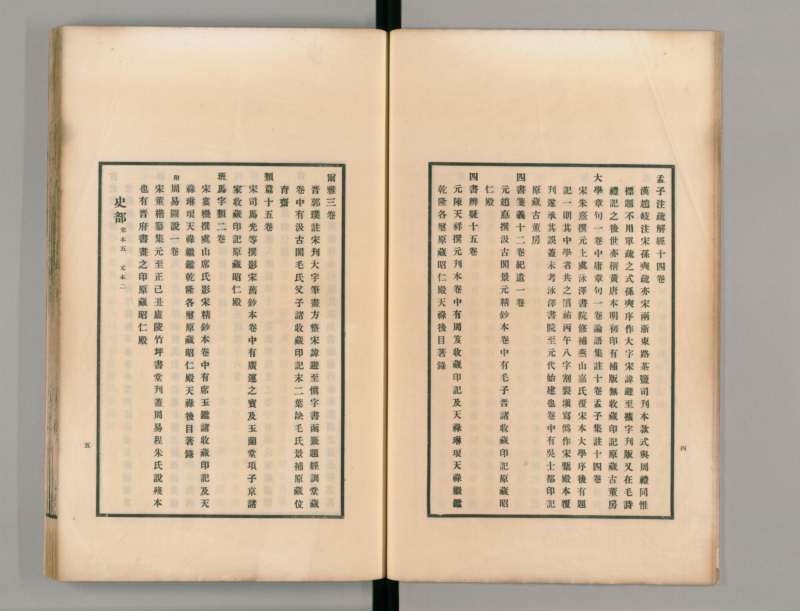 孟子注疏解經十四卷
漢趙岐注宋孫奭疏亦宋兩浙東路茶鹽司刊本款式與周禮同惟
標題不用單疏之式孫奭序作大字宋諱避至擴字刊版又在毛詩
禮記之後世亦稱黃唐本明初印有補版無收藏印記原藏古董房
大學章句一卷中庸章句一卷論語集註十卷孟子集註十四卷
宋朱熹撰元上虞泳澤書院修補燕山嘉氏覆宋本大學序後有題
記一則其中學者共之淳祐丙午八字割裂填寫僞作宋槧殿本覆
刊遂承其誤蓋未考泳澤書院至元代始建也卷中有吳士都印記
原藏古董房
四書箋義十二卷紀遺一卷
元趙悳撰汲古閣景元精鈔本卷中有毛子晉諸收藏印記原藏昭
仁殿
四書辨疑十五卷
元陳天祥撰元刊本卷中有周笈收藏印記及天祿琳琅天祿繼鑑
乾隆各璽原藏昭仁殿天祿後目著錄
四
爾雅三卷
晉郭璞註宋刊大字筆畫方整宋諱避至愼字書面籤題經訓堂藏
卷中有汲古閣毛氏父子諸收藏印記末二葉缺毛氏景補原藏位
育齋
類篇十五卷
宋司馬光等撰影宋舊鈔本卷中有廣運之寶及玉蘭堂項子京諸
家收藏印記原藏昭仁殿
班馬字類二卷
宋婁機撰虞山席氏影宋精鈔本卷中有席玉鑑諸收藏印記及天
祿琳琅天祿繼鑑乾隆各璽原藏昭仁殿天祿後目著錄
附周易圖說一卷
宋董楷纂集元至正己丑廬陵竹坪書堂刊蓋周易程朱氏說殘本
也有晉府書畫之印原藏昭仁殿
史部 宋本五 元本二
五